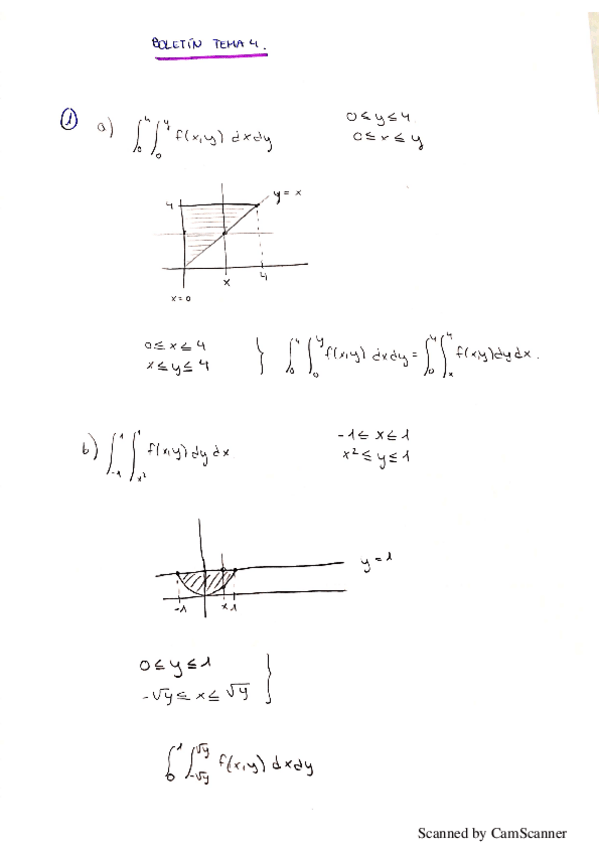 BOLETÍN TEMA 4.
① a) ∫₀⁴ ∫₀^y f(x,y) dx dy 0 ≤ y ≤ 4
0 ≤ x ≤ y
4 y = x
x 4
x = 0
0 ≤ x ≤ 4
x ≤ y ≤ 4 } ∫₀⁴ ∫₀^y f(x,y) dx dy = ∫₀⁴ ∫ₓ⁴ f(x,y) dy dx.
b) ∫₋₁¹ ∫_{x²}^1 f(x,y) dy dx -1 ≤ x ≤ 1
x² ≤ y ≤ 1
y = 1
-1 x 1
0 ≤ y ≤ 1
-√y ≤ x ≤ √y }
∫₀¹ ∫_{-√y}^{√y} f(x,y) dx dy
Scanned by CamScanner